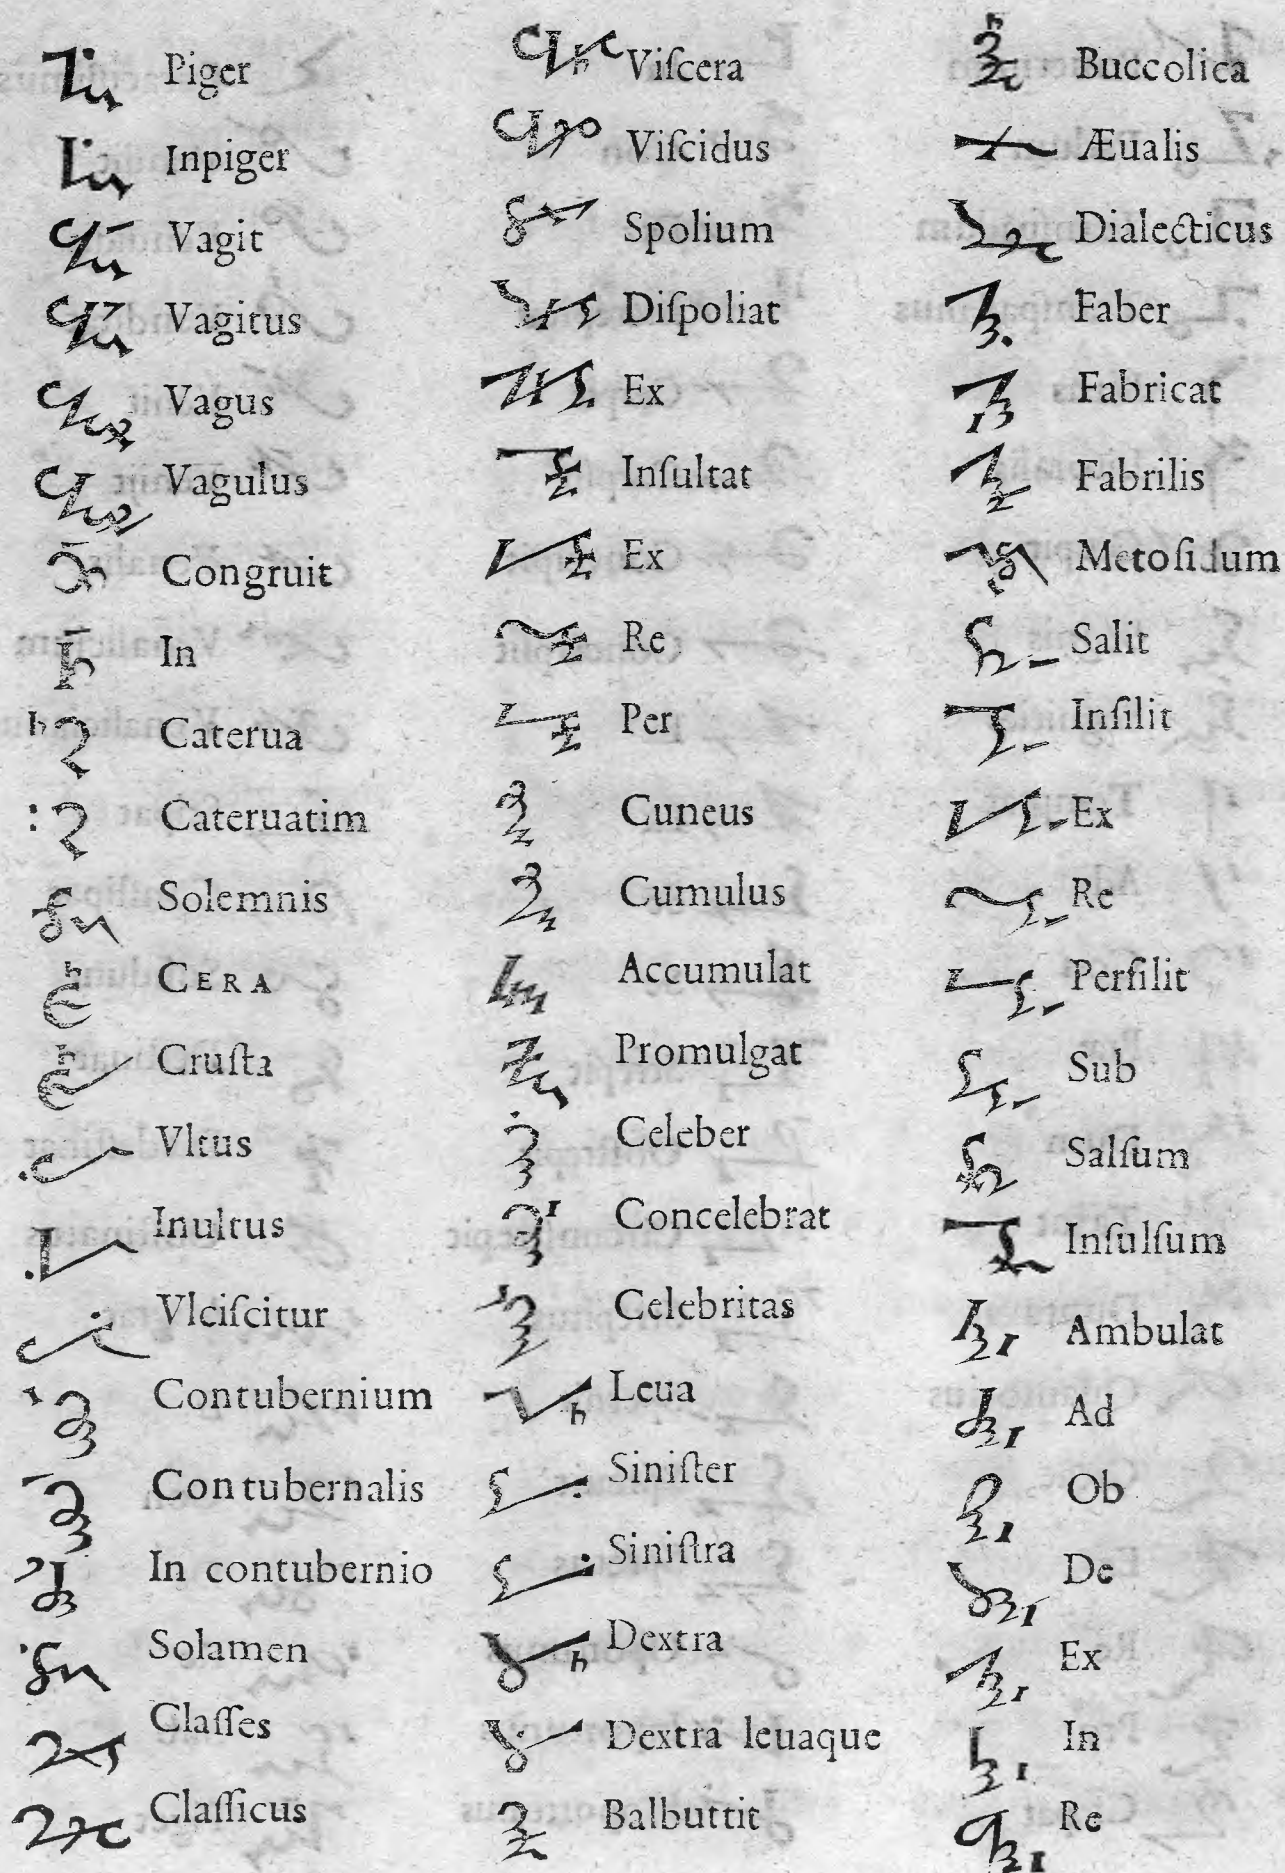 Piger
Inpiger
Vagit
Vagitus
Vagus
Vagulus
Congruit
In
Caterua
Cateruatim
Solemnis
CERA
Cruſta
Vltus
Inultus
Vlciſcitur
Contubernium
Contubernalis
In contubernio
Solamen
Claſſes
Claſſicus
Viſcera
Viſcidus
Spolium
Diſpoliat
Ex
Inſultat
Ex
Re
Per
Cuneus
Cumulus
Accumulat
Promulgat
Celeber
Concelebrat
Celebritas
Leua
Siniſter
Siniſtra
Dextra
Dextra leuaque
Balbuttit
Buccolica
Æualis
Dialecticus
Faber
Fabricat
Fabrilis
Metoſidum
Salit
Inſilit
Ex
Re
Perſilit
Sub
Salſum
Inſulſum
Ambulat
Ad
Ob
De
Ex
In
Re